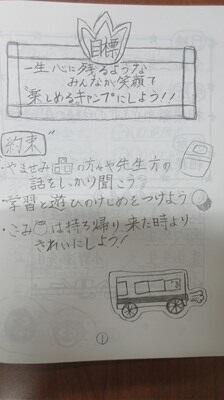 目標
一生心に残るような
みんなが笑顔で
楽しめるキャンプにしよう!!
約束
・やませみの方々や先生方の
話をしっかり聞こう
・学習と遊びのけじめをつけよう
・ごみは持ち帰り来た時より
きれいにしよう!
①